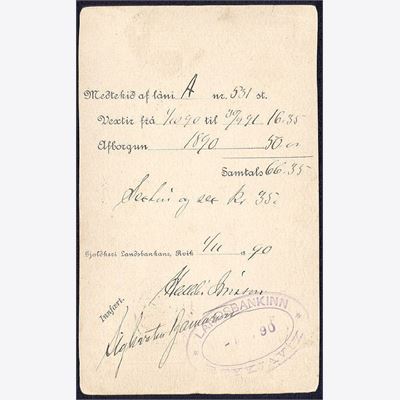 Meðtekið af láni A nr. 531 st.
Vextir frá 1/10 90 til 30/9 91 16.35
Afborgun 1890 50 00
Samtals 66.35
Sextíu og sex kr. 35
Gjaldkeri Landsbankans, Rvík 1/11 90
Halldór Jónsson
Innfært.
Sighvatur Bjarnason
LANDSBANKINN
90
REYKJAVÍK